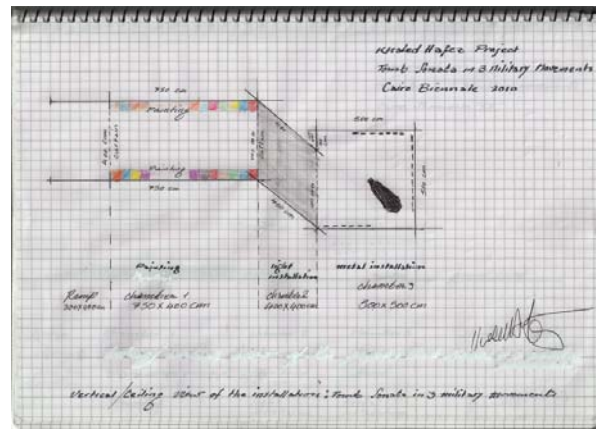 Khaled Hafez Project
Tomb Sonata in 3 Military Movements
Cairo Biennale 2010
750 cm
Painting
400 cm
curtain
Painting
750 cm
400 cm
500 cm
500 cm
Painting
light installation
metal installation
Ramp
chamber 1
750 X 400 cm
chamber 2
400X400cm
chamber 3
500 X 500 cm
Vertical/Ceiling view of the installation: Tomb Sonata in 3 military movements